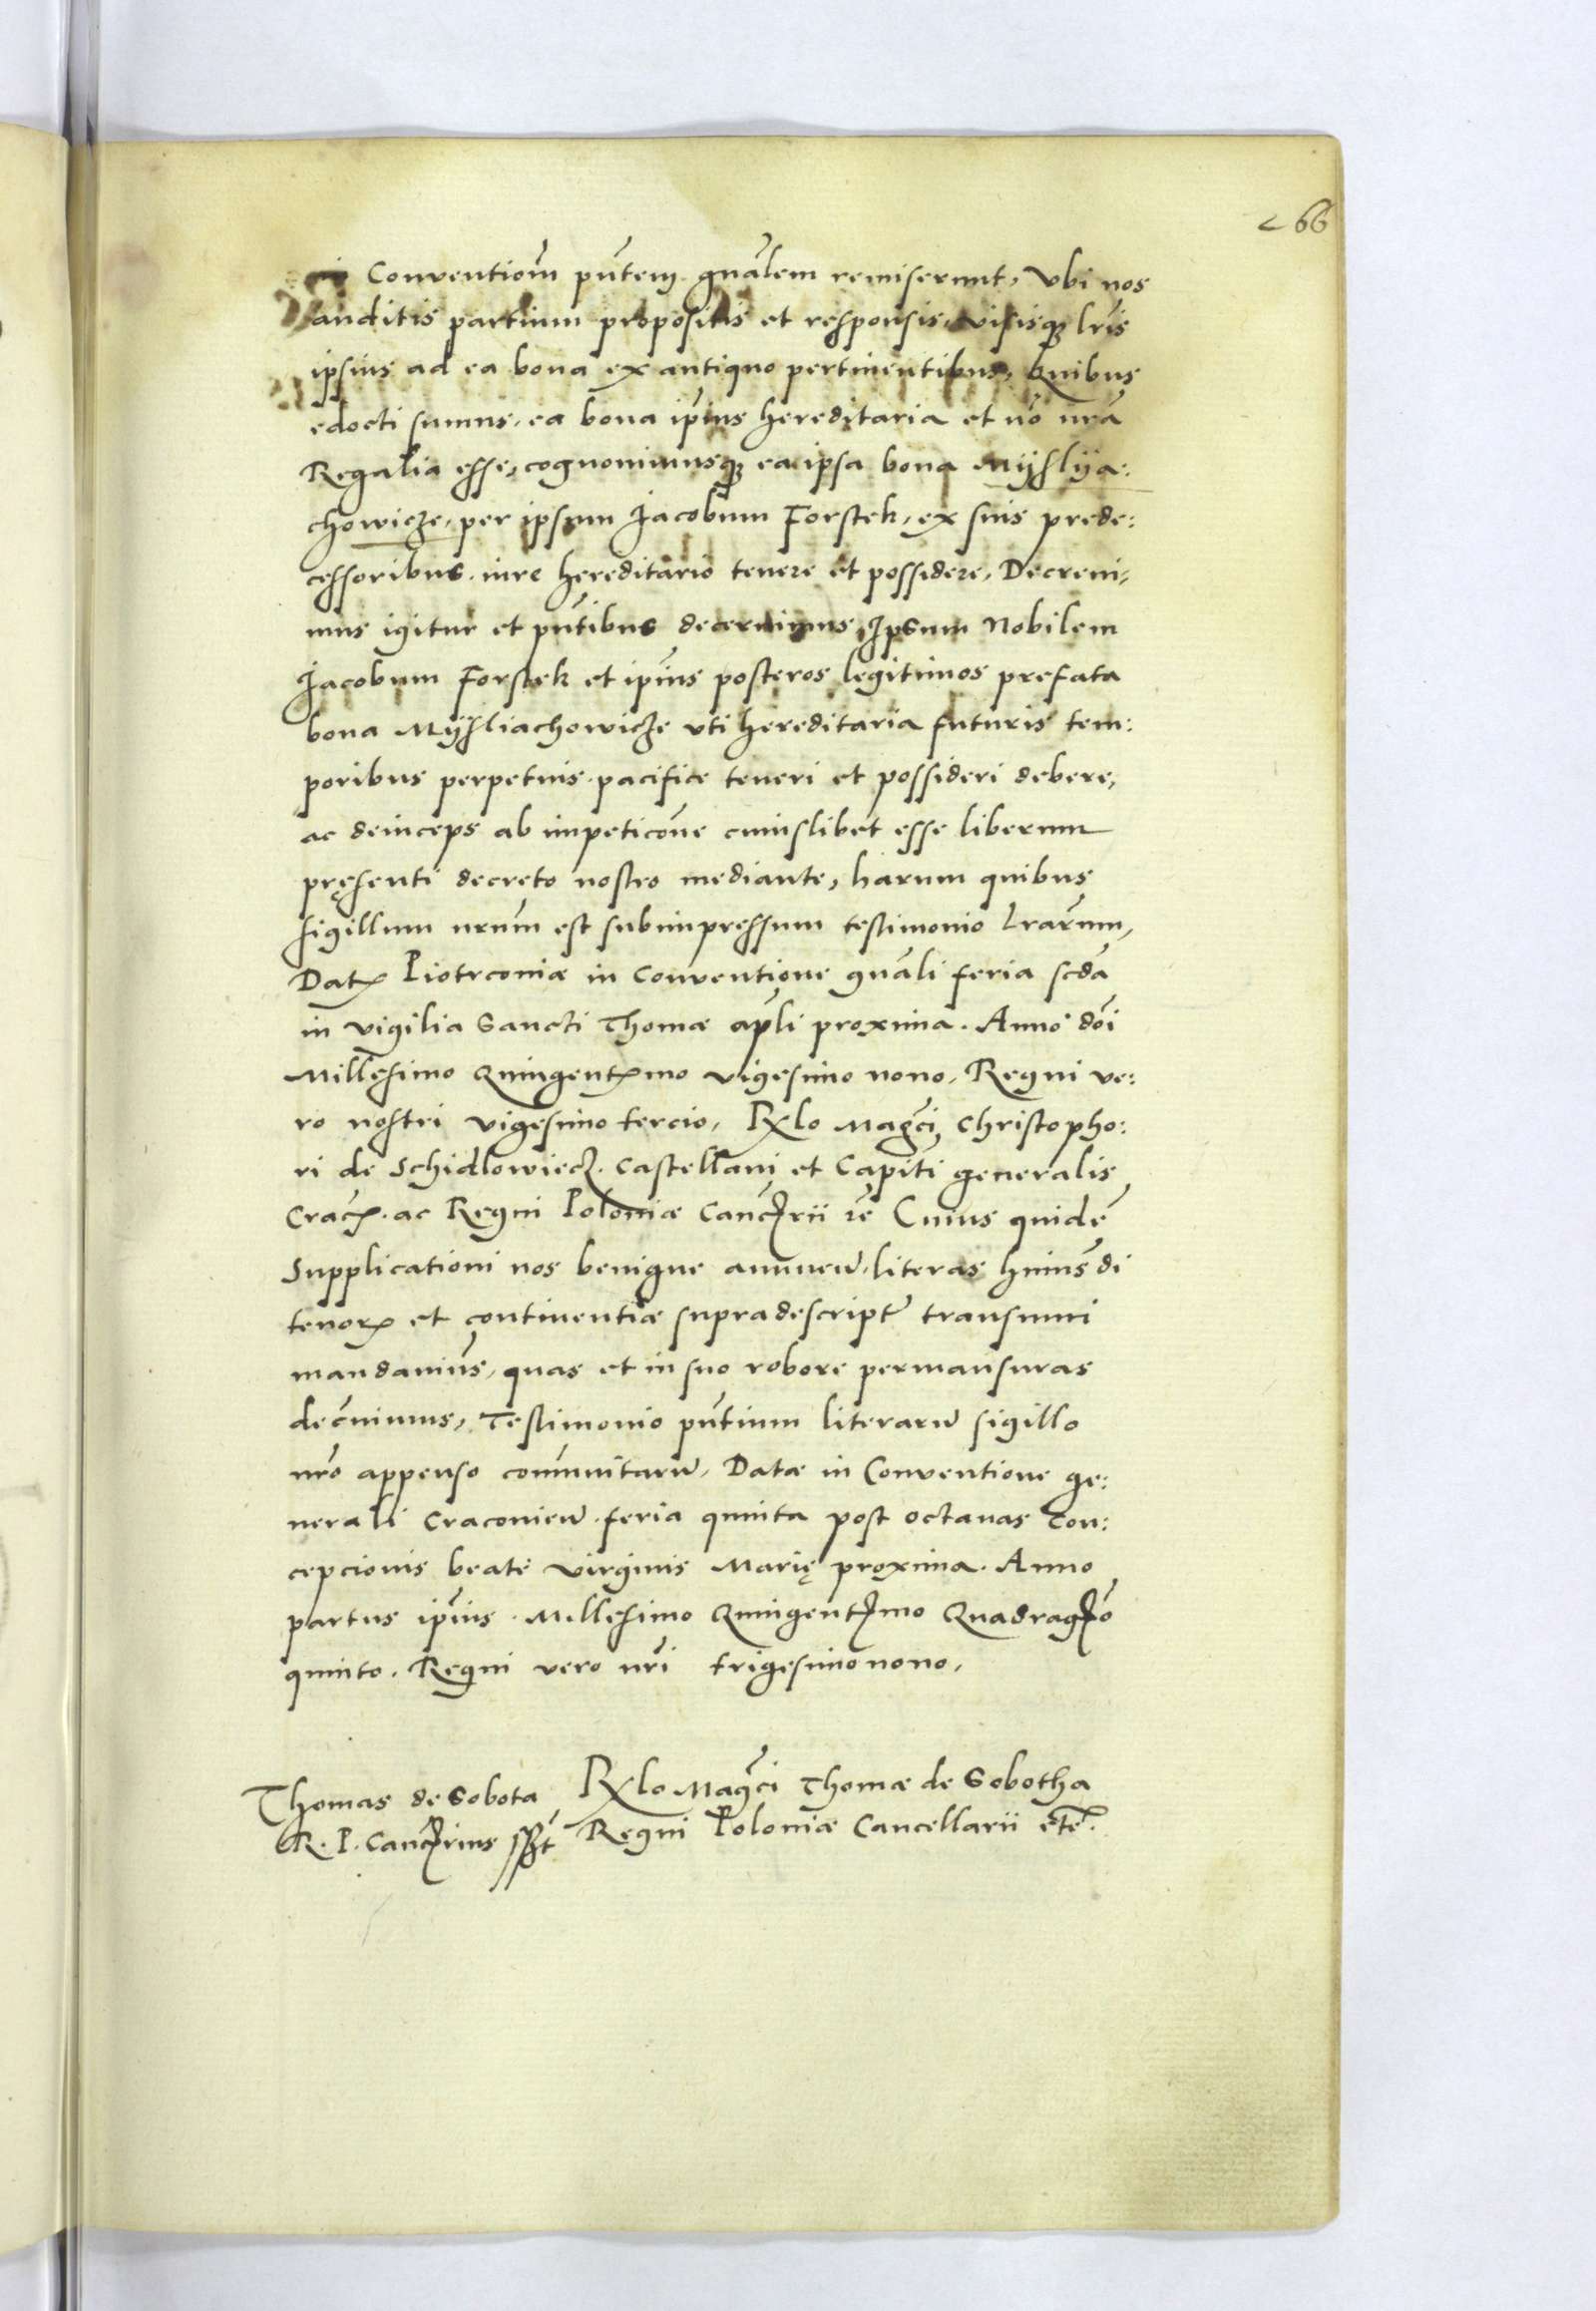 66
Conventiom̃ pñtem gnãlem remiserunt, Vbi nos
auditis partium propositis et responsis, visisq3 lr̃is
ipsius ad ea bona ex antiquo pertinentibus, Quibus
edocti sumus, ea bona ip̃ius hereditaria et nõ nrã
Regalia esse, cognouimusq3 ea ipsa bona Myslya:
chowicze, per ipsum Jacobum Forstek, ex suis prede:
cessoribus iure hereditario tenere et possidere, Decreui:
mus igitur et pñtibus decernimus, Ipsum Nobilem
Jacobum Forstek et ip̃ius posteros legitimos prefata
bona Mysliachowicze vti hereditaria futuris tem:
poribus perpetuis pacifice teneri et possideri debere,
ac deinceps ab impeticõne cuiuslibet esse liberum
pręsenti decreto nostro mediante, harum quibus
sigillum nrũm est subimpressum testimonio lrãrum,
Datꝝ Piotrconiæ in Conventione gnãli feria scdã
in vigilia Sancti Thomæ apl̃i proxima. Anno dñi
Millesimo Quingentꝝmo vigesimo nono, Regni ve:
ro nostri vigesimo tercio, Rẽlo Mag̃ci Christopho:
ri de Schidlowiecz Castellani et Capit̃i generalis
Cracꝝ. ac Regni Poloniæ Canc̃rii zẽ Cuius quidẽ
Supplicationi nos benigne annueñ, literas huius̃di
tenorꝝ et continentiæ supradescript̃ transumi
mandauim̃s, quas et in suo robore permansuras
dec̃nimus, Testimonio pñtium literarũ sigillo
nr̃o appenso com̃unitarũ, Datæ in Conventione ge:
nerali Cracovieñ feria quinta post octauas Con:
cepcionis beate virginis Marię proxima. Anno
partus ip̃ius. Millesimo Quingentꝭmo Quadragꝭõ
quinto. Regni vero nr̃i trigesimo nono,
Thomas de Sobota
R. P. Canc̃rius sst
Rẽlo Mag̃ci Thomæ de Sobotha
Regni Poloniæ Cancellarii etc̃.